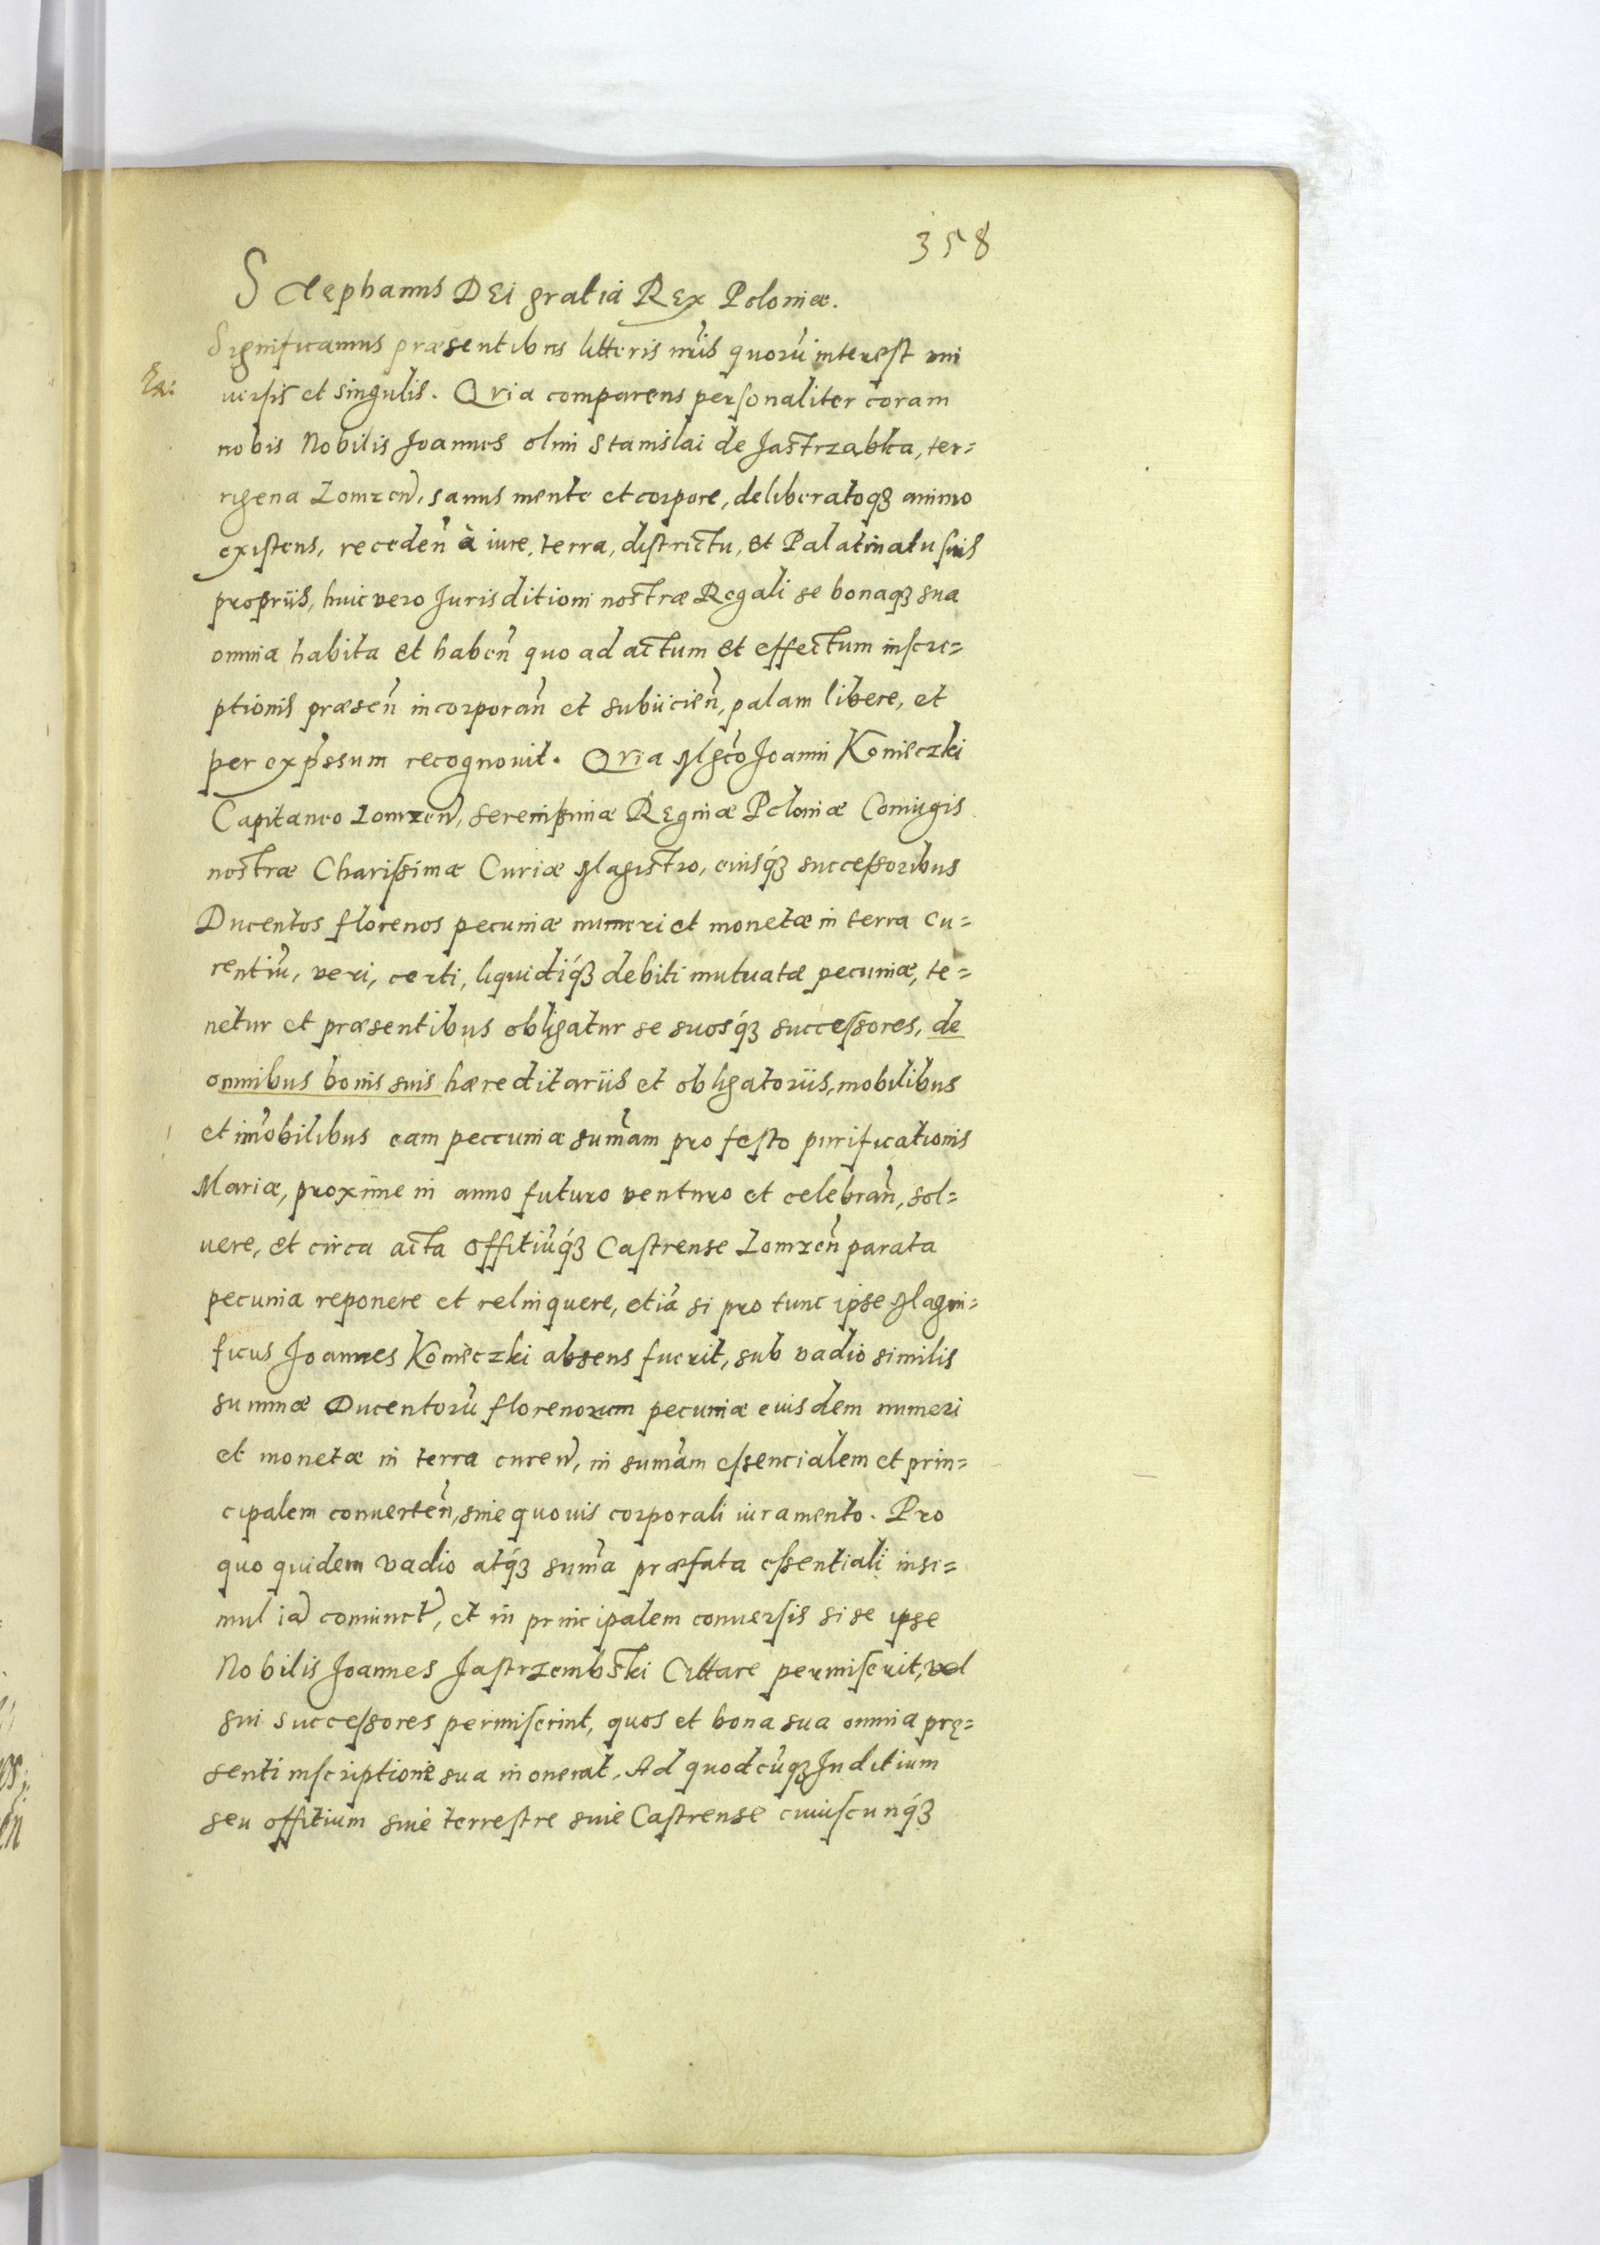 358
Stephanus DEi gratia REx Poloniæ.
Significamus præsentibus litteris nr̃is quorũ interest uni
Ex:
uersis et singulis. Quia comparens personaliter coram
nobis Nobilis Joannes olim Stanislai de Jastrząbka, ter=
rigena Lomzeñ, sanus mente et corpore, deliberatoqȝ animo
existens, recedeñ à iure, terra, districtu, et Palatinatu suis
propriis, huic vero Jurisditioni nostræ Regali se bonaqȝ sua
omnia habita et habeñ quo ad actum et effectum inscri=
ptionis præseñ incorporañ et subiicieñ, palam libere, et
per exp̃ssum recognouit. Quia Mg̃co Joanni Konieczki
Capitaneo Lomzeñ, serenissimæ REginæ Poloniæ Coniugis
nostræ Charissimæ Curiæ Magistro, eiusq́ȝ successoribus
Ducentos florenos pecuniæ numeri et monetæ in terra cu=
rentiũ, veri, certi, liquidiq́ȝ debiti mutuatæ pecuniæ, te=
netur et præsentibus obligatur se suosq́ȝ successores, de
omnibus bonis suis hæreditariis et obligatoriis, mobilibus
et im̃obilibus eam peccuniæ sum̃am pro festo purificationis
Mariæ, proxime in anno futuro venturo et celebrañ, sol=
uere, et circa acta offitiũq́ȝ Castrense Lomzeñ parata
pecunia reponere et relinquere, etiã si pro tunc ipse Magni=
ficus Joannes Konieczki absens fuerit, sub vadio similis
summæ Ducentorũ florenorum pecuniæ eiusdem numeri
et monetæ in terra cureñ, in sum̃am essencialem et prin=
cipalem conuerteñ, sine quouis corporali iuramento. Pro
quo quidem vadio atq́ȝ sum̃a præfata essentiali insi=
mul iã coniunct̃, et in principalem conuersis si se ipse
Nobilis Joannes Jastrzembski Cittare permiserit, vel
sui successores permiserint, quos et bona sua omnia prę=
senti inscriptione sua inonerat. Ad quodcũqȝ Juditium
seu offitium siue terrestre siue Castrense cuiuscunq́ȝ